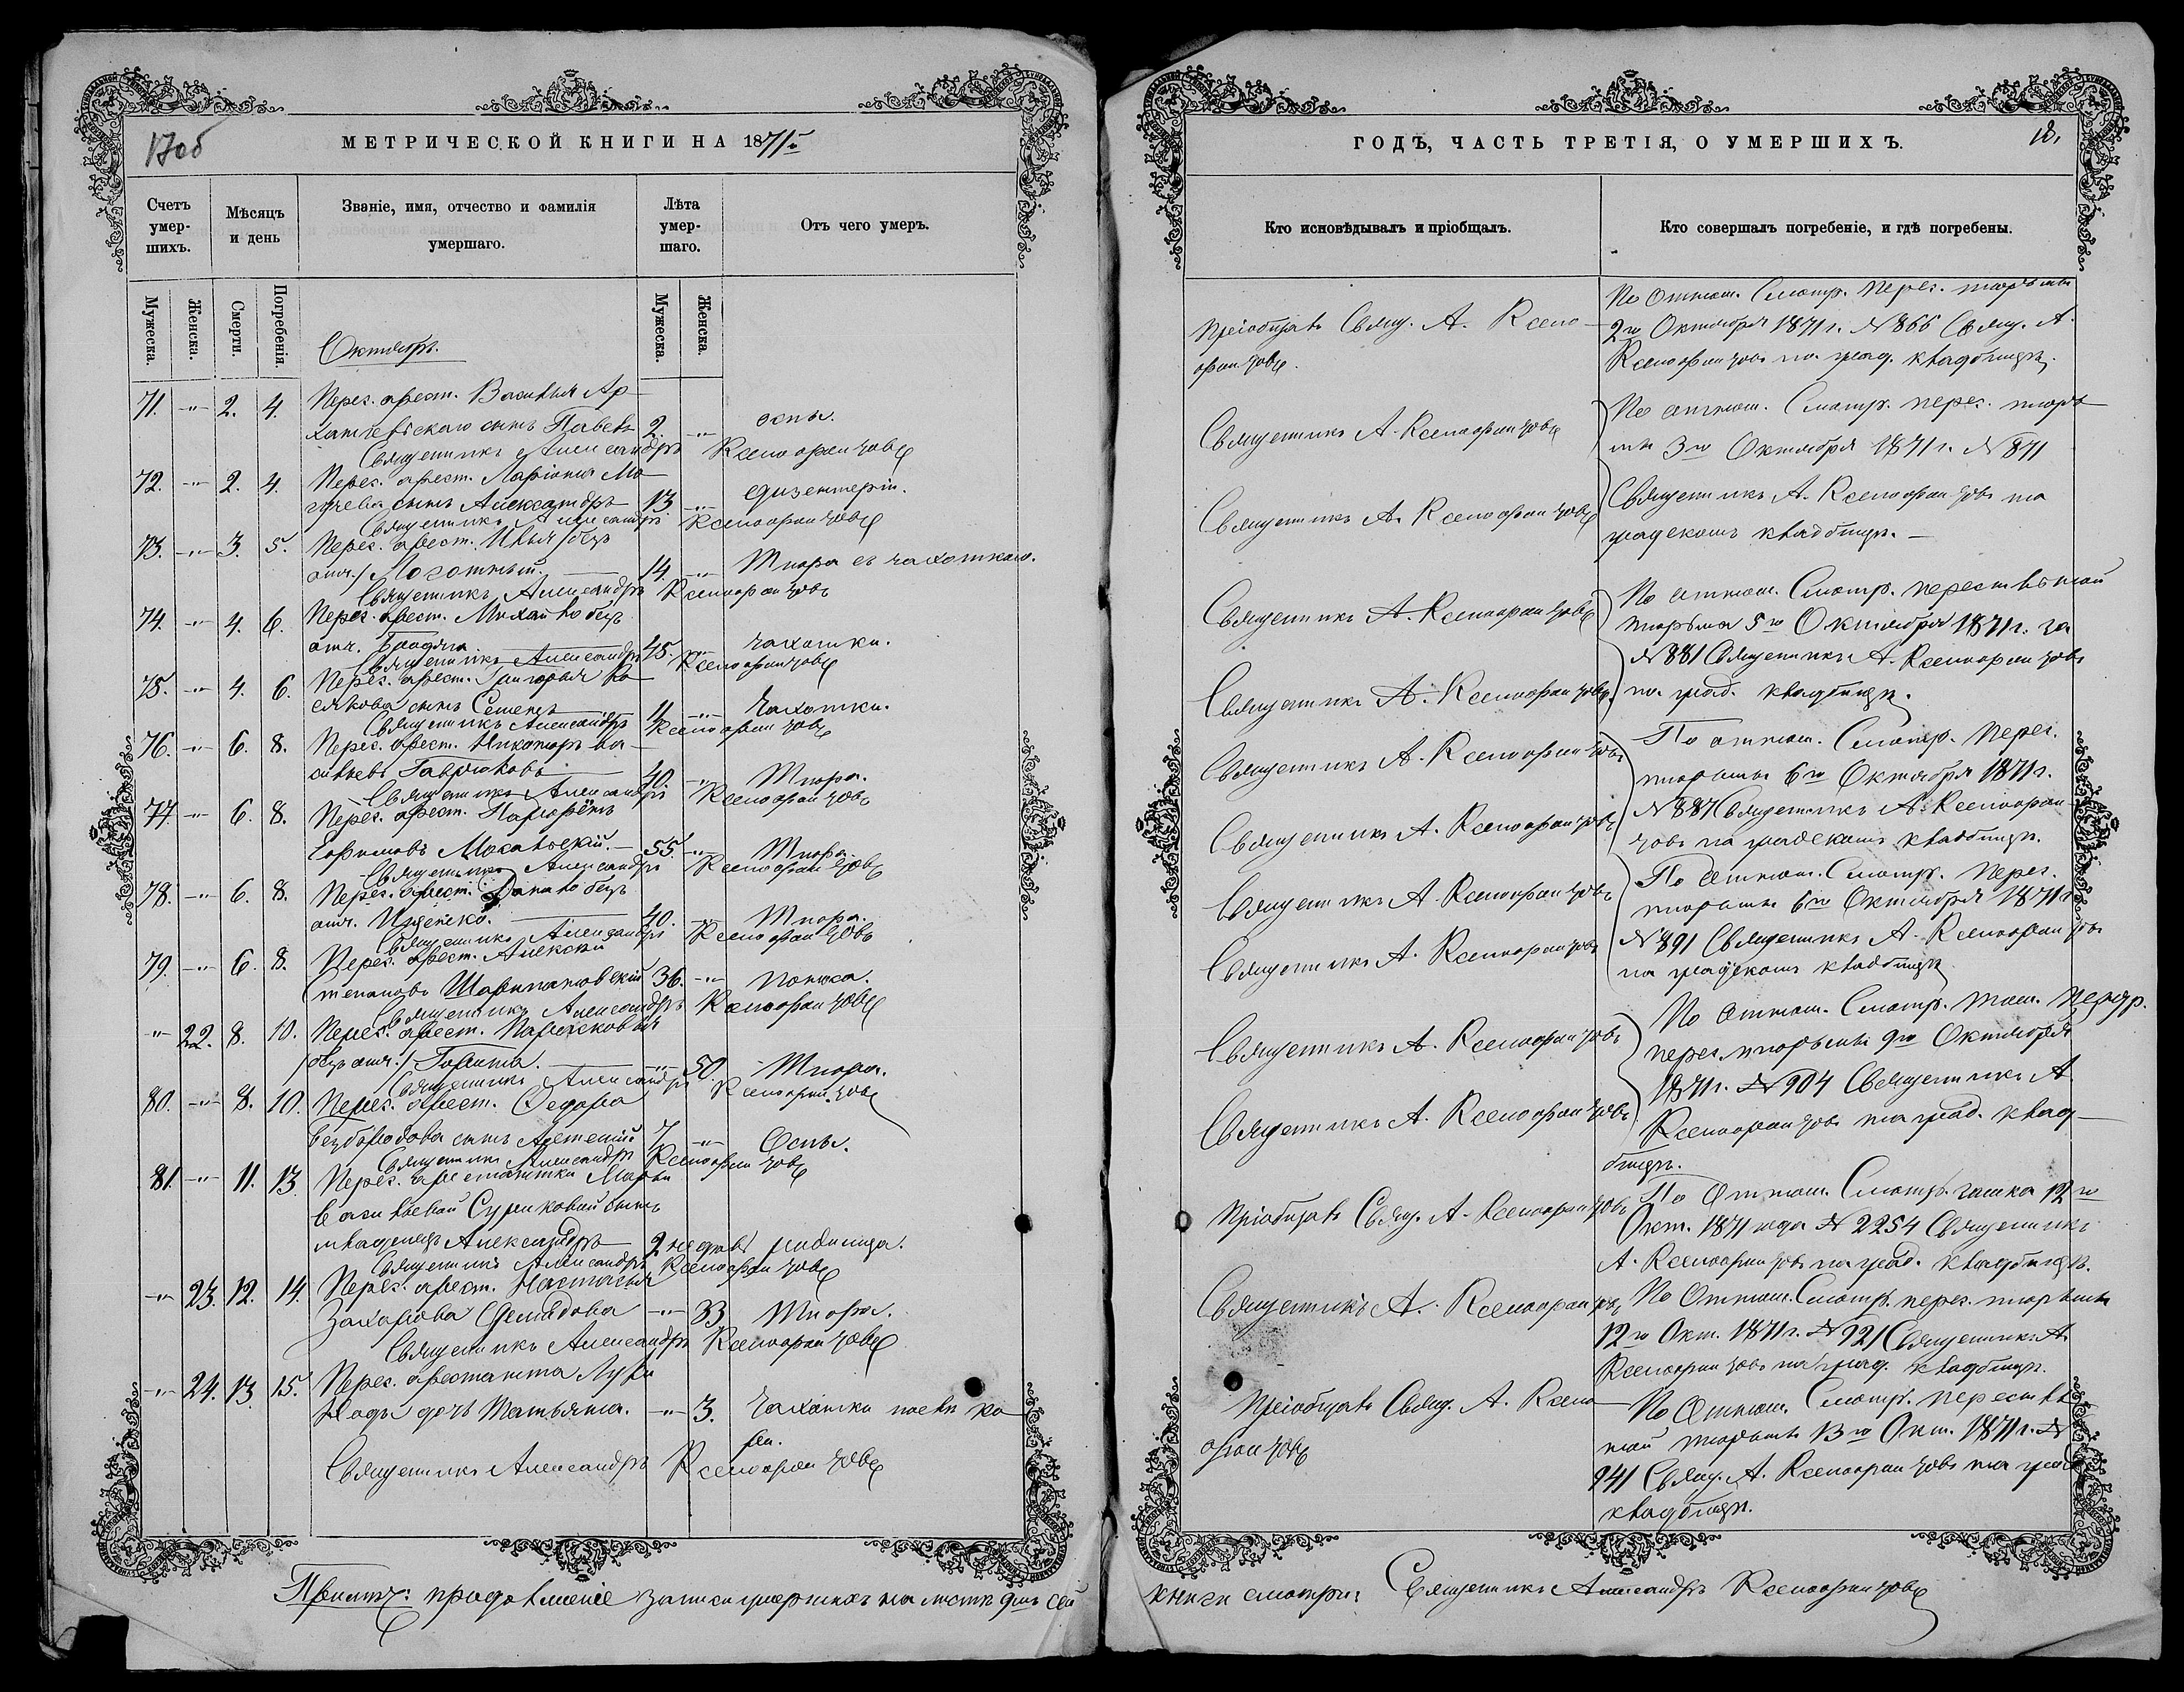 17об
МЕТРИЧЕСКОЙ КНИГИ НА 1871 г.
Счетъ умер-шихъ.
Мѣсяцъ и день
Званіе, имя, отчество и фамилія умершаго.
Лѣта умер-шаго.
Отъ чего умеръ.
Мужеска.
Женска.
Смерти.
Погребенія.
Мужеска.
Женска.
Октябрь.
71. -"- 2. 4. Перес. арест. Василья Ар-
сынъ Павелъ 2. -"- оспы.
Священникъ Александръ Ксенофонтовъ
72. -"- 2. 4. Перес. арест. Ларіона Мо-
сынъ Александръ 13 -"- дизентеріи.
Священникъ Александръ Ксенофонтовъ
73. -"- 3. 5. Перес. арест. Илья /безъ
отч./ 14. -"- Тифа съ чахоткою.
Священникъ Александръ Ксенофонтовъ
74. -"- 4. 6. Перес. арест. Михайло безъ
отч. Бродяга. 45. -"- чахотки.
Священникъ Александръ Ксенофонтовъ
75. -"- 4. 6. Перес. арест. Григорья Ко-
сякова сынъ Семенъ 11 -"- Чахотки.
Священникъ Александръ Ксенофонтовъ
76. -"- 6. 8. Перес. арест. Никаноръ Ва-
сильевъ Гаврюковъ 40. -"- Тифа.
Священникъ Александръ Ксенофонтовъ
77. -"- 6. 8. Перес. арест. Парфёнъ
Ефимовъ 55. -"- Тифа.
Священникъ Александръ Ксенофонтовъ
78. -"- 6. 8. Перес. арест. безъ
отч. Ищенко. 40. -"- Тифа.
Священникъ Александръ Ксенофонтовъ
79. -"- 6. 8. Перес. арест. Алексѣй
Степановъ 36. -"- поноса.
Священникъ Александръ Ксенофонтовъ
-"- 22. 8. 10. Перес. арест. Парасковья
/безъ отч./ -"- 50. Тифа.
Священникъ Александръ Ксенофонтовъ
80. -"- 8. 10. Перес. арест. Федора
Безбородова сынъ Арсеній 7 -"- Оспы.
Священникъ Александръ Ксенофонтовъ
81. -"- 11. 13. Перес. арестантки Марьи
Васильевой Суриковой сынъ
младенецъ Александръ 2 недѣль родимца.
Священникъ Александръ Ксенофонтовъ
-"- 23. 12. 14. Перес. арест. Настасья
Захарова Демидова -"- 33 Тифа.
Священникъ Александръ Ксенофонтовъ
-"- 24. 13 15. Перес. арестанта Луки
дочь Татьяна. -"- 3. Чахотки послѣ ко-
ри.
Священникъ Александръ Ксенофонтовъ
Примѣч: продолженіе записи умершихъ на листѣ 9мъ сей
ГОДЪ, ЧАСТЬ ТРЕТІЯ, О УМЕРШИХЪ.
18.
Кто исповѣдывалъ и пріобщалъ.
Кто совершалъ погребеніе, и гдѣ погребены.
Пріобщалъ Свящ. А. Ксено-
фонтовъ.
По Отнош. Смотр. перес. тюрьмы
2го Октября 1871 г. № 866 Свящ. А.
Ксенофонтовъ на град. кладбищѣ.
Священникъ А. Ксенофонтовъ
По отнош. Смотр. перес. тюрь-
мы 3го Октября 1871 г. № 871
Священникъ А. Ксенофонтовъ
Священникъ А. Ксенофонтовъ на
градскомъ кладбищѣ.
Священникъ А. Ксенофонтовъ
По отнош. Смотр. пересыльной
тюрьмы 5го Октября 1871 г. за
№ 881 Священникъ А. Ксенофонтовъ
Священникъ А. Ксенофонтовъ
на град. кладбищѣ.
Священникъ А. Ксенофонтовъ
По отнош. Смотр. перес.
тюрьмы 6го Октября 1871 г.
Священникъ А. Ксенофонтовъ
№ 887 Священникъ А. Ксенофон-
товъ на градскомъ кладбищѣ.
Священникъ А. Ксенофонтовъ
По Отнош. Смотр. перес.
тюрьмы 6го Октября 1871 г.
Священникъ А. Ксенофонтовъ
№ 891 Священникъ А. Ксенофонтовъ
на градскомъ кладбищѣ
Священникъ А. Ксенофонтовъ
По Отнош. Смотр.
перес. тюрьмы 9го Октября
Священникъ А. Ксенофонтовъ
1871 г. № 904 Священникъ А.
Ксенофонтовъ на град. клад-
бищѣ.
Пріобщалъ Свящ. А. Ксенофонтовъ
По Отнош. Смотр. замка 12го
Окт. 1871 года № 2254 Священникъ
А. Ксенофонтовъ на град. кладбищѣ.
Священникъ А. Ксенофонтовъ
По Отнош. Смотр. перес. тюрьмы
12го Окт. 1871 г. № 921 Священникъ А.
Ксенофонтовъ на град. кладбищѣ.
Пріобщалъ Свящ. А. Ксено-
фонтовъ
По Отнош. Смотр. пересыль-
ной тюрьмы 13го Окт. 1871 г. №
941 Свящ. А. Ксенофонтовъ на град.
кладбищѣ.
книги смотри: Священникъ Александръ Ксенофонтовъ